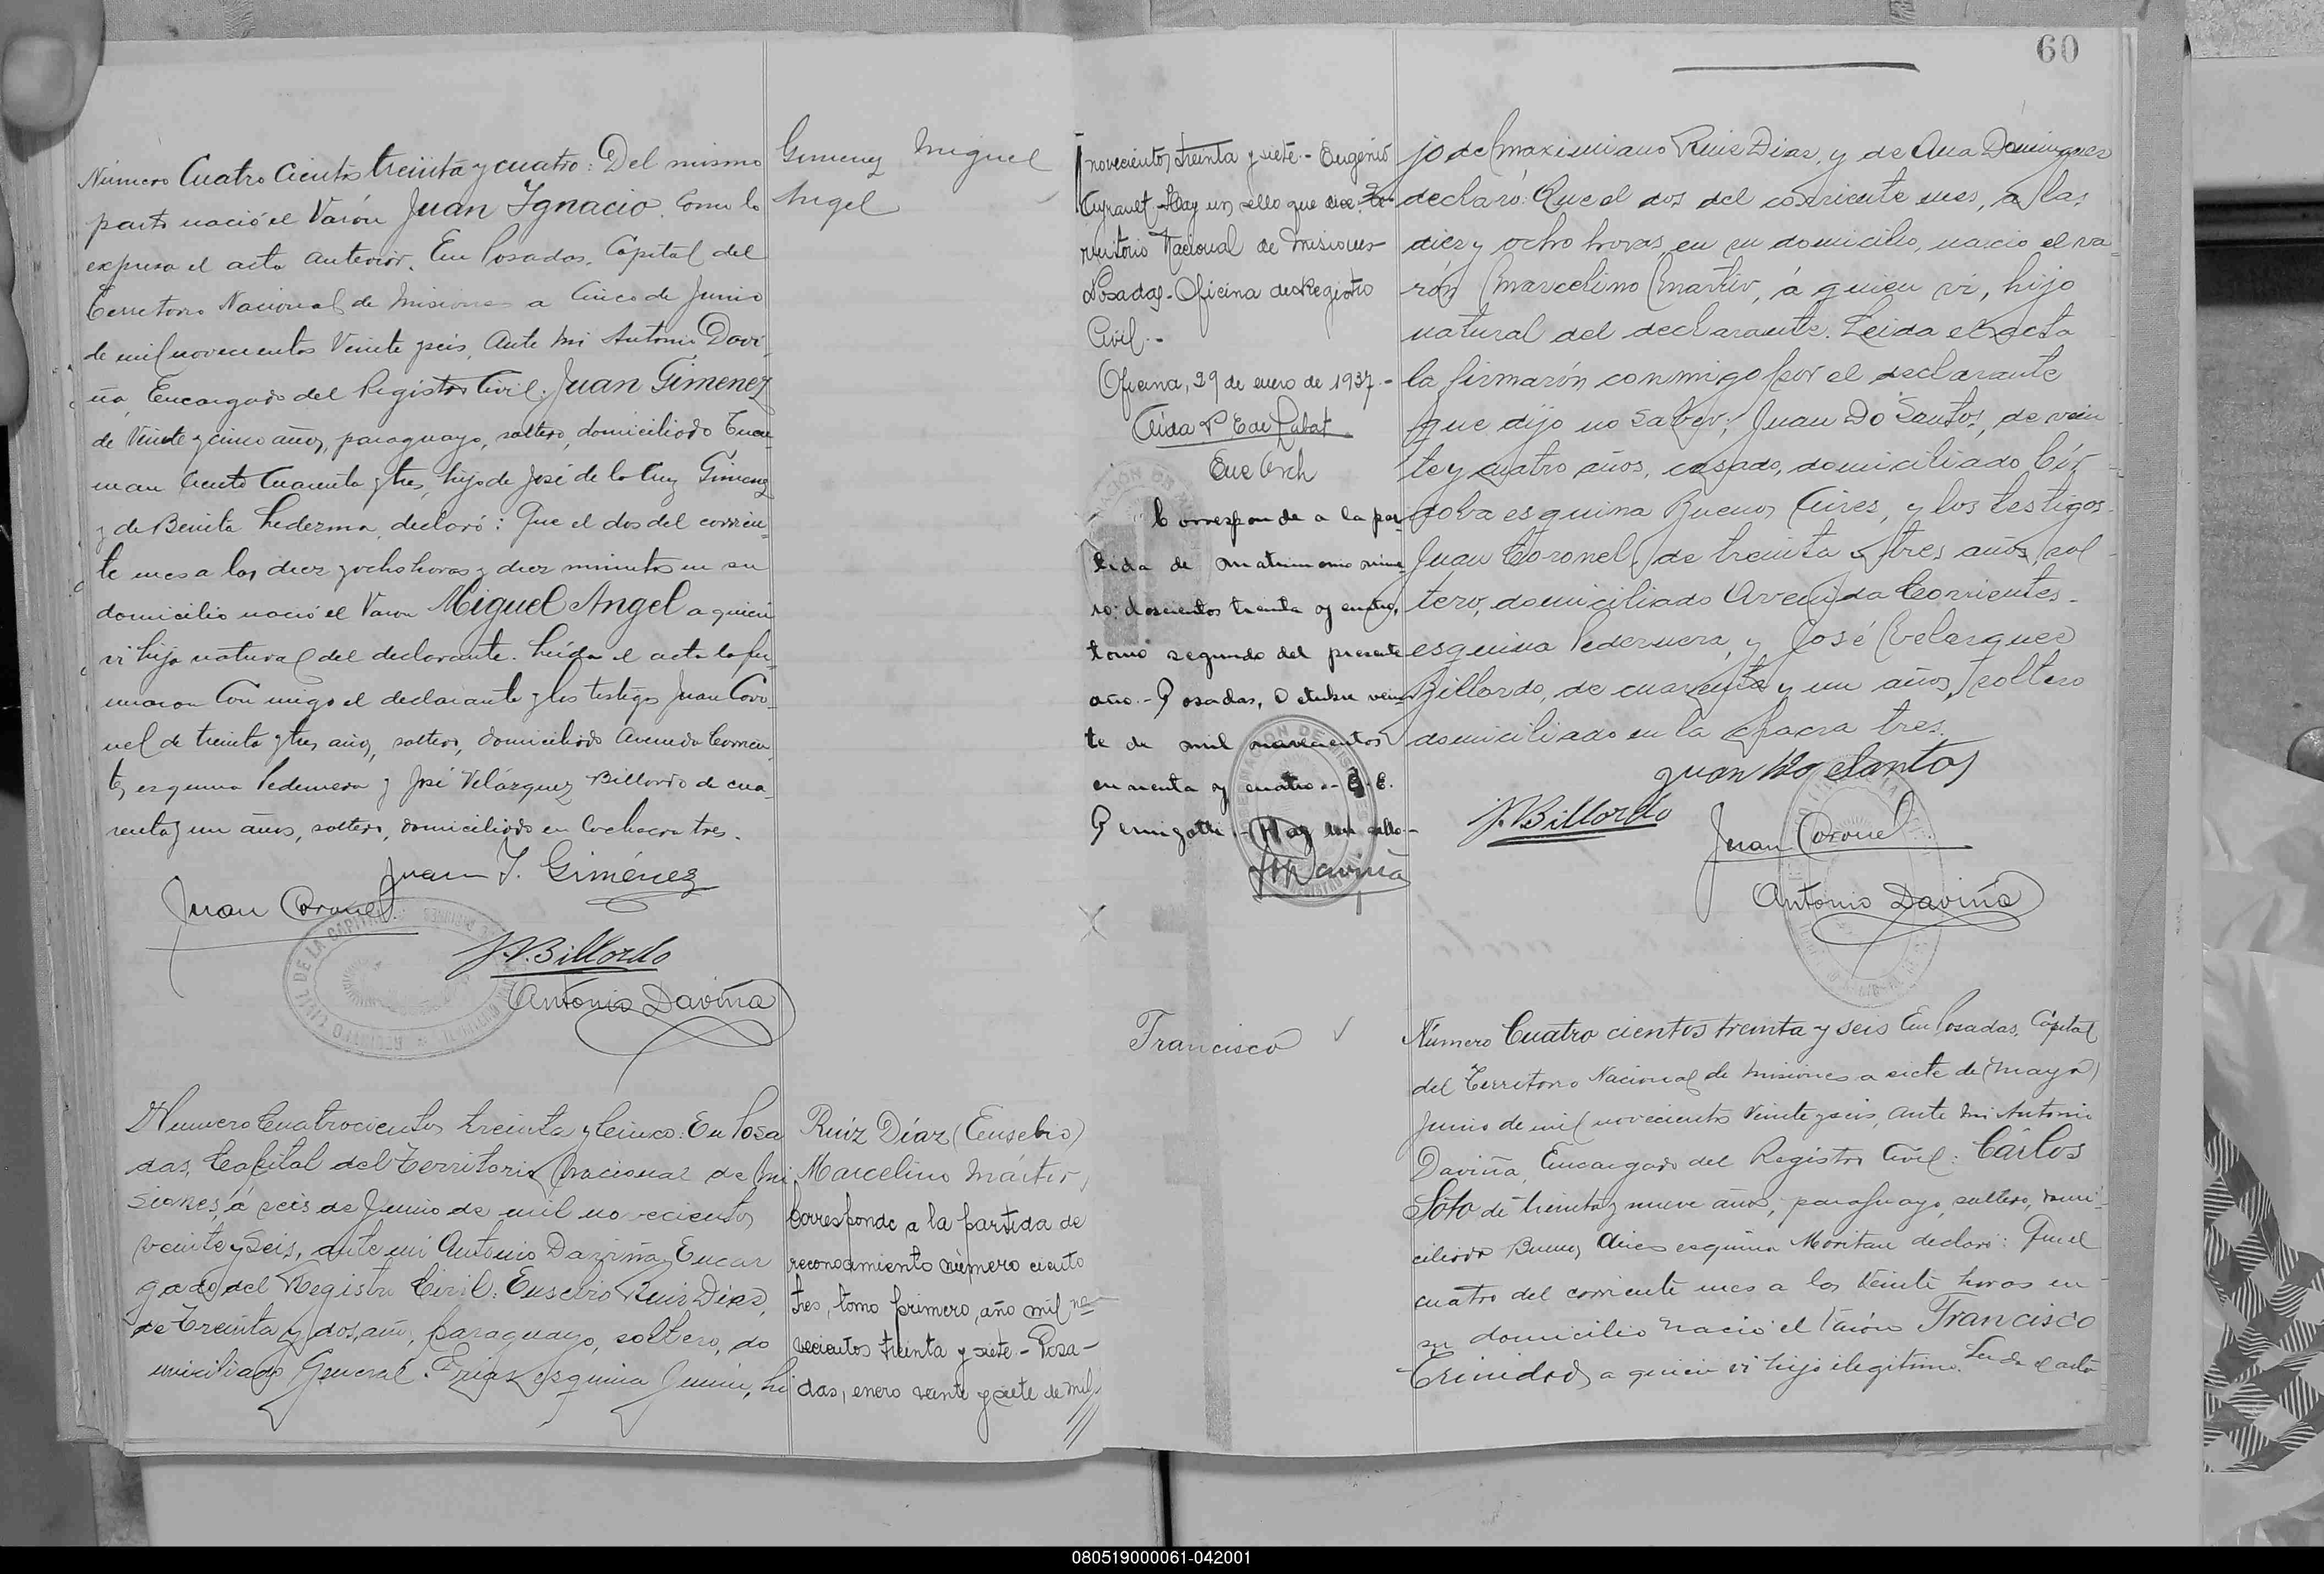 Número Cuatro cientos treinta y cuatro: Del mismo
parto nació el Varón Juan Ignacio. Como lo
expresa el acta anterior. En Posadas, Capital del
Territorio Nacional de Misiones a Cinco de Junio
de mil novecientos Veinte y seis, Ante mi Antonio Davi-
ña, Encargado del Registro Civil: Juan Gimenez
de Veinte y cinco años, paraguayo, soltero, domiciliado Tucu-
man Ciento Cuarenta y tres, hijo de José de la Cruz Gimenez
y de Benita Ledezma, declaró: Que el dos del corrien-
te mes a las diez y ocho horas y diez minutos en su
domicilio nació el Varon Miguel Angel a quien
vi hijo natural del declarante. Leída el acta la fir-
maron Con migo el declarante y los testigos Juan Coro-
nel de treinta y tres años, soltero, domiciliado Avenida Corrien-
tes esquina Pedernera y José Velázquez Billordo de cua-
renta y un años, soltero, domiciliado en la chacra tres.
Juan I. Giménez
Juan Coronel
J.V. Billordo
Antonio Daviña
Gimenez Miguel
Angel
Numero Cuatrocientos treinta y Cinco: En Posa
das, Capital del Territorio Nacional de Mi
siones, á seis de Junio de mil novecientos
veinte y Seis, ante mi Antonio Daviña, Encar
gado del Registro Civil: Eusebio Ruiz Diaz,
de Treinta y dos, años, paraguayo, soltero, do
miciliado General Frias esquina Junin, hi
Ruíz Díaz (Eusebio)
Marcelino Mártir
Corresponde a la partida de
reconocimiento número ciento
tres, tomo primero, año mil no-
vecientos treinta y siete - Posa-
das, enero veinte y siete de mil
60
novecientos treinta y siete.- Eugenio
Hay un sello que dice: Te-
rritorio Nacional de Misiones
Posadas - Oficina de Registro
Civil.-
Oficina, 29 de enero de 1937.-
Corresponde a la par-
tida de matrimonio núme-
ro: doscientos treinta y cuatro,
tomo segundo del presente
año.- Posadas, Octubre vein-
te de mil novecientos
cincuenta y cuatro.- E.E.
Hay un sello.-
Daviña
jo de Maximiano Ruiz Diaz, y de Ana Dominguez
declaró: Que el dos del corriente mes, a las
diez y ocho horas, en su domicilio, nació el va-
rón Marcelino Martir, á quien vi, hijo
natural del declarante. Leida el acta
la firmarón conmigo por el declarante
que dijo no saber, Juan Do Santos, de vein
te y cuatro años, casado, domiciliado Cór
doba esquina Buenos Aires, y los testigos
Juan Coronel, de treinta y tres años, sol
tero, domiciliado Avenida Corrientes
esquina Pedernera, y José Velazquez
Billordo, de cuarenta y un años, soltero
domiciliado en la chacra tres.
Juan Do Santos
J.V. Billordo
Juan Coronel
Antonio Daviña
Francisco
Número Cuatro cientos treinta y seis En Posadas, Capital
del Territorio Nacional de Misiones a siete de (mayo)
Junio de mil novecientos Veinte y seis, ante mi Antonio
Daviña, Encargado del Registro Civil: Cárlos
Soto de treinta y nueve años, paraguayo, soltero, domi-
ciliado Buenos Aires esquina declaró: Que el
cuatro del corriente mes a las Veinte horas en
su domicilio nació el Varón Francisco
Trinidad, a quien vi hijo ilegitimo. Leída el acta
080519000061-042001